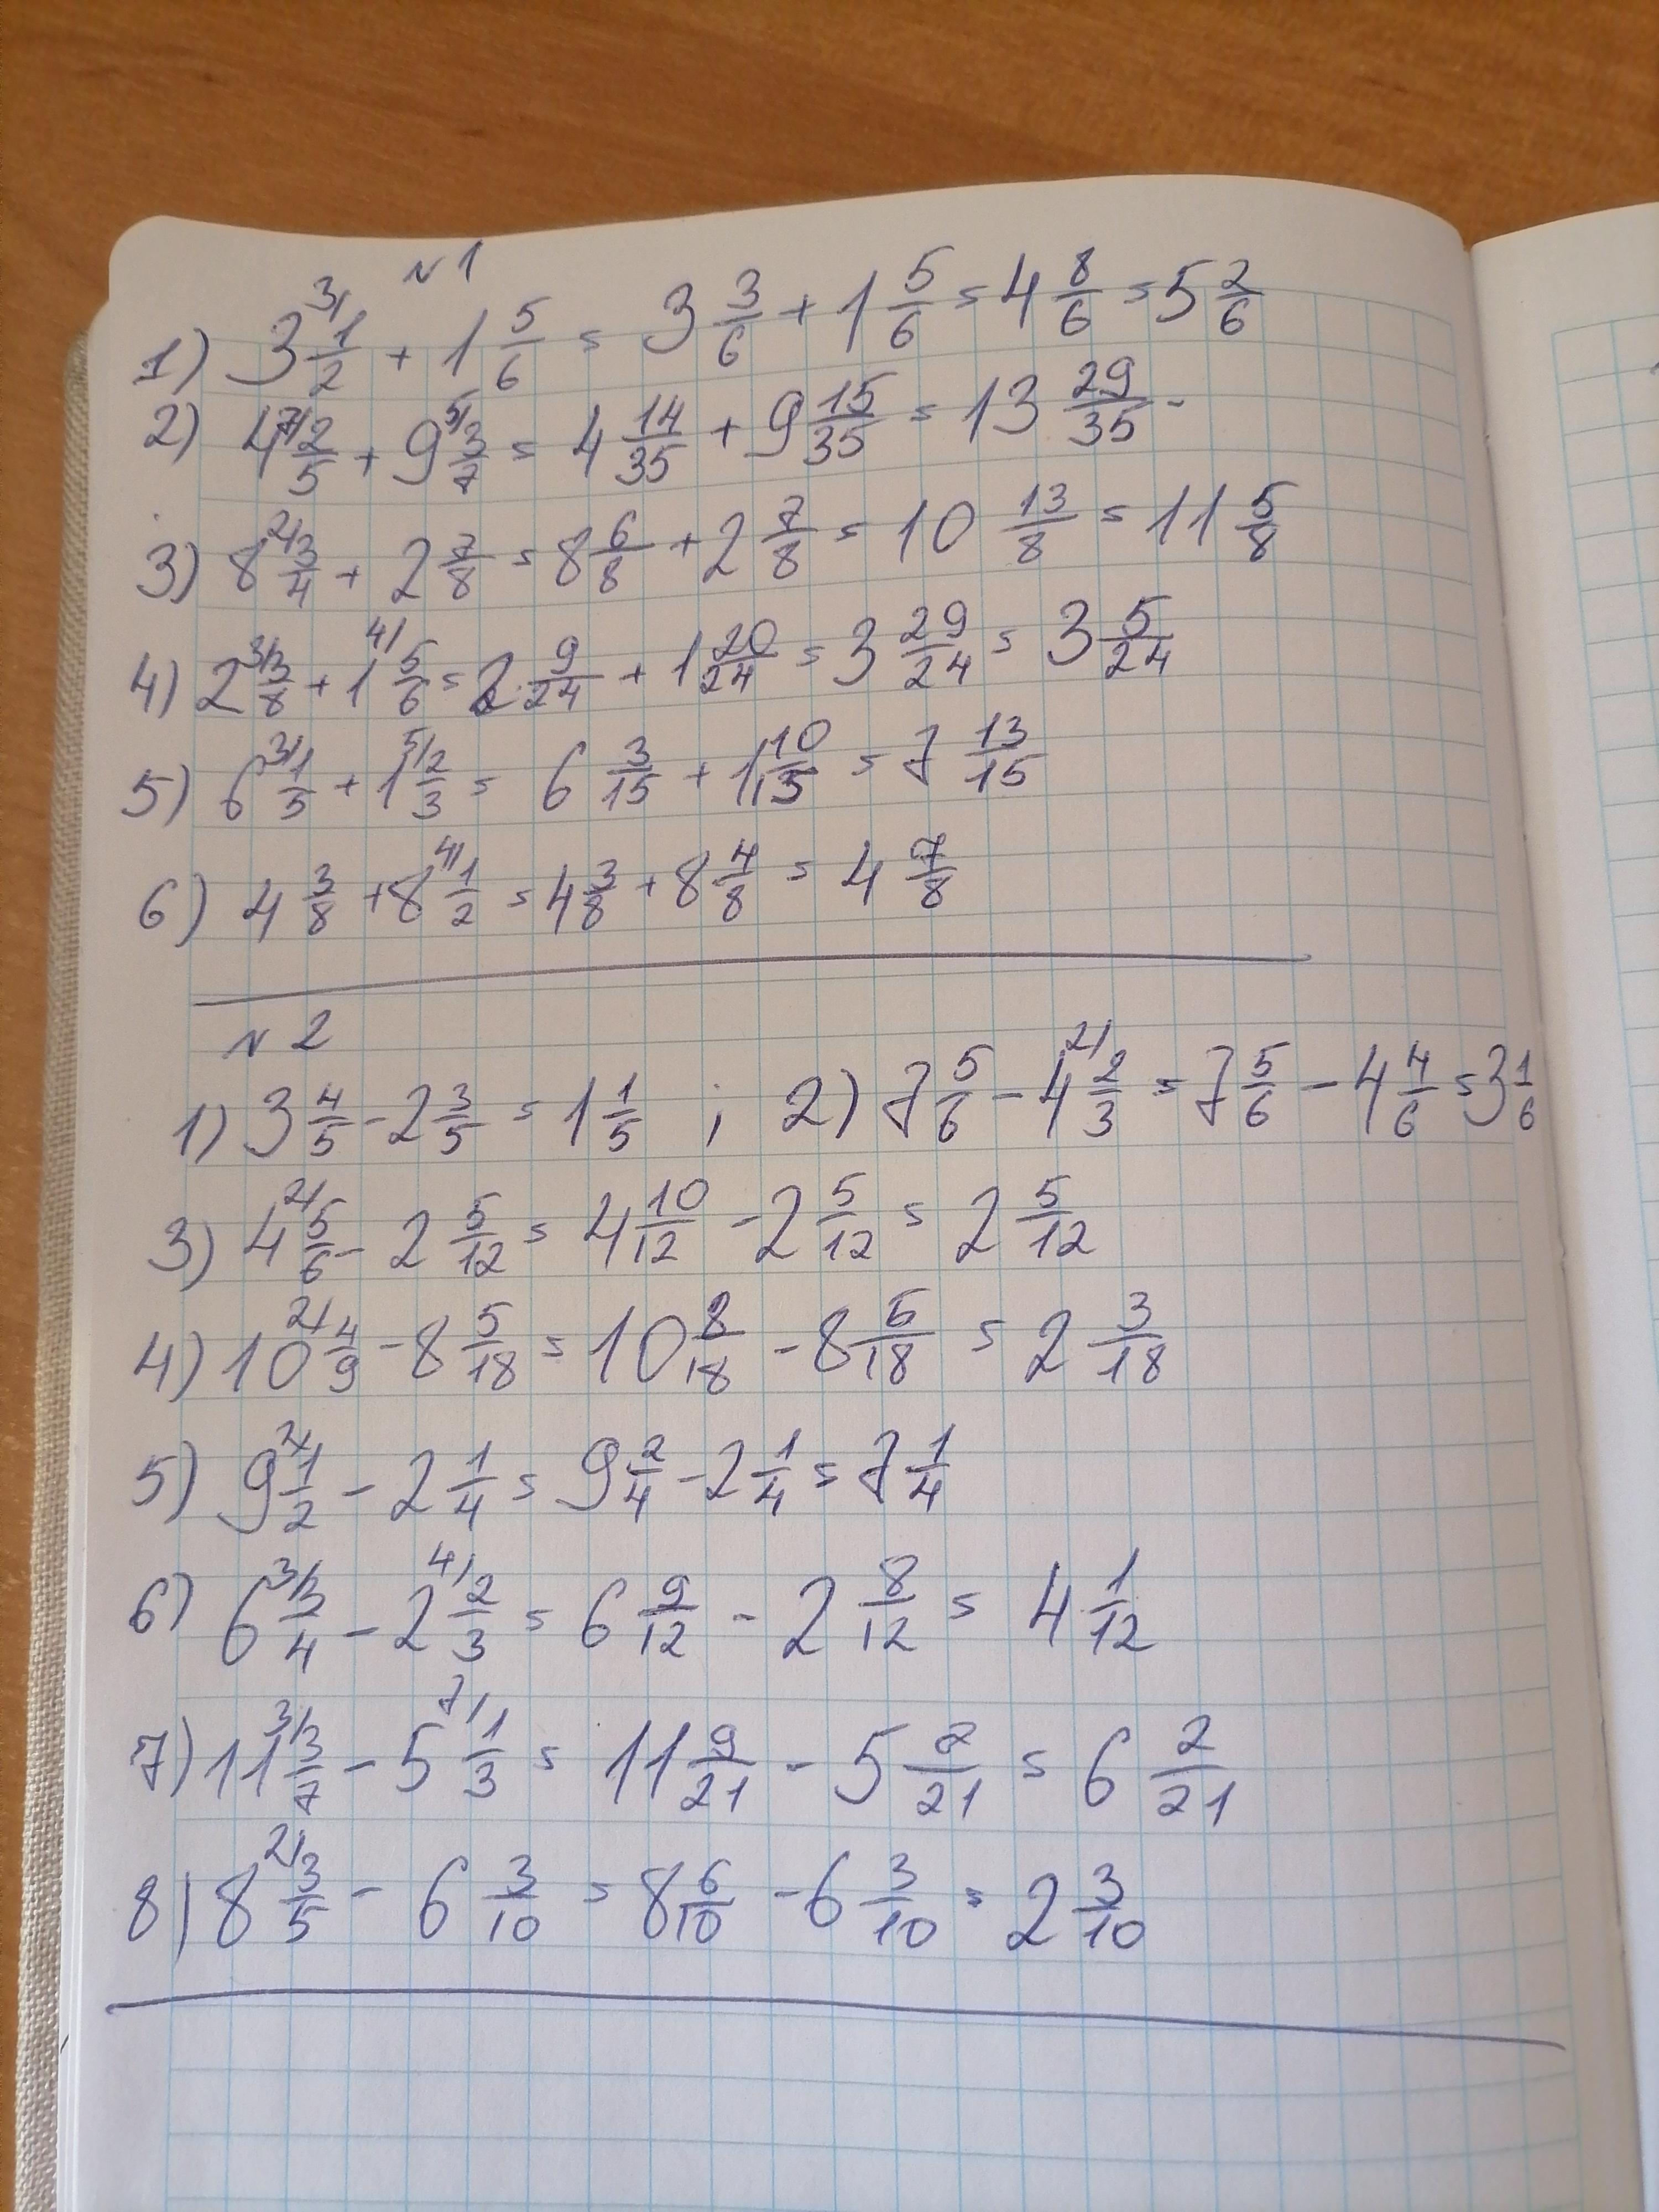 N 1
1) 3 3/ 1/2 + 1 5/6 = 3 3/6 + 1 5/6 = 4 8/6 = 5 2/6
2) 4 7/ 2/5 + 9 5/ 3/7 = 4 14/35 + 9 15/35 = 13 29/35 -
3) 8 2/ 3/4 + 2 7/8 = 8 6/8 + 2 7/8 = 10 13/8 = 11 5/8
4) 2 3/ 3/8 + 1 4/ 5/6 = 2 9/24 + 1 20/24 = 3 29/24 = 3 5/24
5) 6 3/ 1/5 + 1 5/ 2/3 = 6 3/15 + 1 10/15 = 7 13/15
6) 4 3/8 + 8 4/ 1/2 = 4 3/8 + 8 4/8 = 4 7/8
N 2
1) 3 4/5 - 2 3/5 = 1 1/5 ; 2) 7 5/6 - 4 2/ 2/3 = 7 5/6 - 4 4/6 = 3 1/6
3) 4 2/ 5/6 - 2 5/12 = 4 10/12 - 2 5/12 = 2 5/12
4) 10 2/ 4/9 - 8 5/18 = 10 8/18 - 8 5/18 = 2 3/18
5) 9 2/ 1/2 - 2 1/4 = 9 2/4 - 2 1/4 = 7 1/4
6) 6 3/ 3/4 - 2 4/ 2/3 = 6 9/12 - 2 8/12 = 4 1/12
7) 11 3/ 3/7 - 5 7/ 1/3 = 11 9/21 - 5 7/21 = 6 2/21
8) 8 2/ 3/5 - 6 3/10 = 8 6/10 - 6 3/10 = 2 3/10